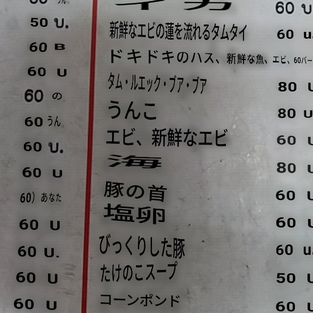 50 บ.
60 B
60 U
60 の
60 うん
60 บ.
60 U
60) あなた
60 U
60 U.
60 U
60 U
新鮮なエビの蓮を流れるタムタイ
ドキドキのハス、新鮮な魚、エビ、60バー
タム・ルエック・プア・プア
うんこ
エビ、新鮮なエビ
海
豚の首
塩卵
びっくりした豚
たけのこスープ
コーンポンド
60 U
60 u
80 U
80 u
60 U
80 U
60 U
60 U
60 u
50 U
60 U